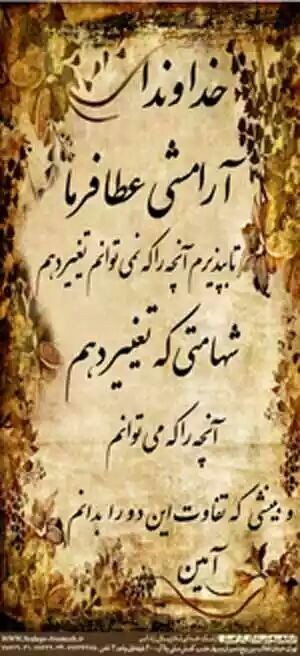 خداوندا
آرامشی عطا فرما
تا بپذیرم آنچه را که نمی توانم تغییر دهم
شهامتی که تغییر دهم
آنچه را که می توانم
و بینشی که تفاوت این دو را بدانم
آمین